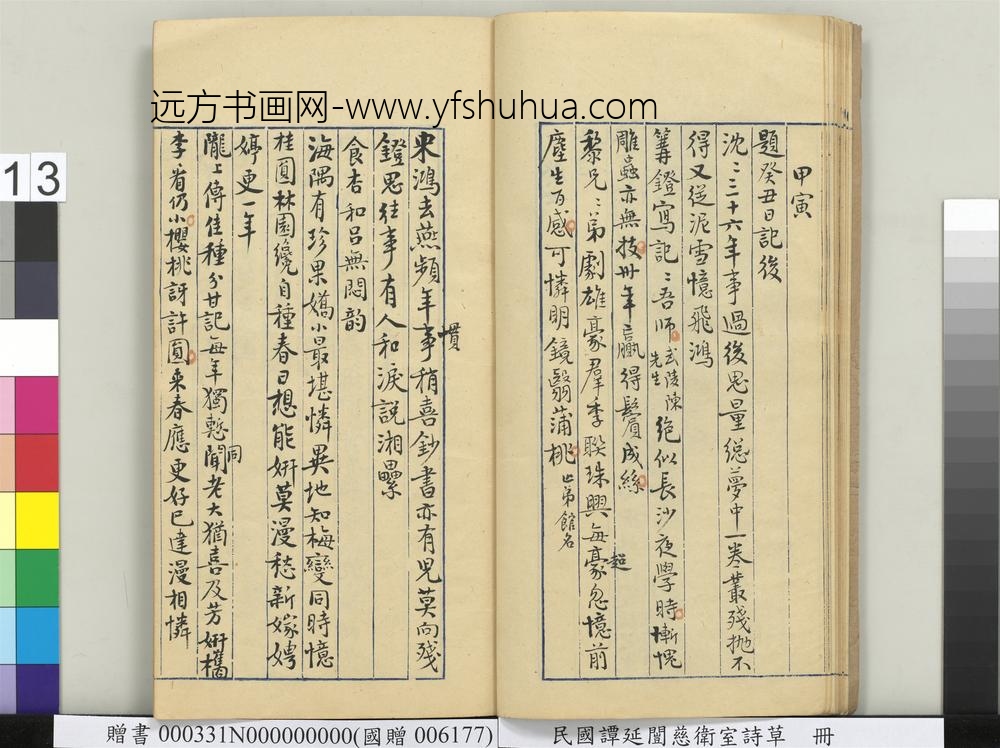 甲寅
題癸丑日記後
沈〻三十六年事過後思量總夢中一卷叢殘拋不
得又從泥雪憶飛鴻
篝鐙寫記〻吾師武陵陳先生絶似長沙夜學時慚愧
雕蟲亦無技卅年贏得鬢成絲
黎兄〻弟劇雄豪羣季聯珠興每豪超忽憶前
塵生百感可憐明鏡翳蒲桃亡弟館名
來鴻去燕頻年事慣稍喜鈔書亦有兒莫向殘
鐙思往事有人和淚說湘纍
食杏和呂無悶韵
海隅有珍果嬌小最堪憐異地知梅變同時憶
桂圓林園纔自種春日想能妍莫漫愁新嫁娉
婷更一年
隴上傳佳種分甘記每年獨慙聞同老大猶喜及芳妍檇
李看仍小櫻桃訝許圓來春應更好已達漫相憐
远方书画网-www.yfshuhua.com
13
贈書 000331N000000000(國贈 006177)
民國譚延闓慈衛室詩草 冊